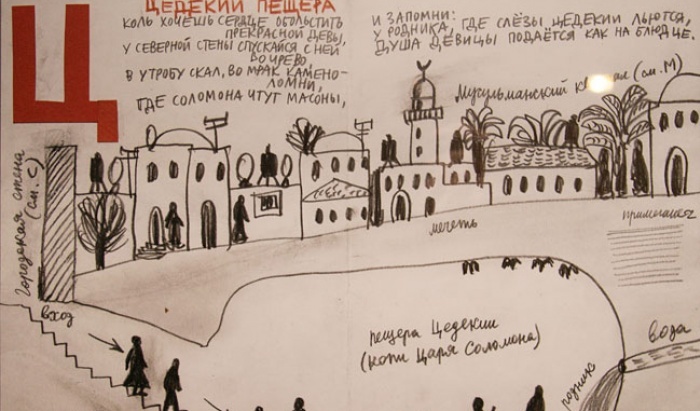 Ц
ЦЕДЕКИИ ПЕЩЕРА
КОЛЬ ХОЧЕШЬ СЕРДЦЕ ОБОЛЬСТИТЬ
ПРЕКРАСНОЙ ДЕВЫ,
У СЕВЕРНОЙ СТЕНЫ СПУСКАЙСЯ С НЕЙ
ВО ЧРЕВО,
В УТРОБУ СКАЛ, ВО МРАК КАМЕНО-
ЛОМНИ,
ГДЕ СОЛОМОНА ЧТУТ МАСОНЫ,
И ЗАПОМНИ:
У РОДНИКА, ГДЕ СЛЁЗЫ ЦЕДЕКИИ ЛЬЮТСЯ,
ДУША ДЕВИЦЫ ПОДАЁТСЯ КАК НА БЛЮДЦЕ.
Мусульманский (см. М)
Городская стена
(см. С)
мечеть
примечания
вход
пещера Цедекии
(копи Царя Соломона)
вода
родник